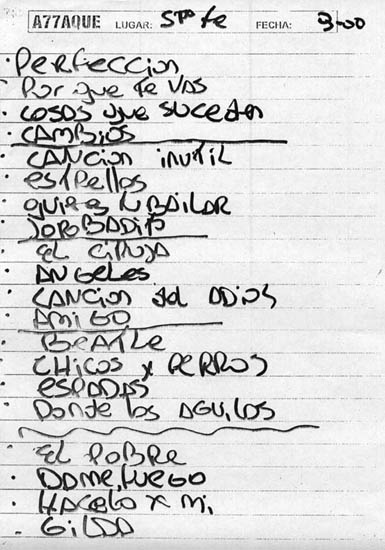 A77AQUE LUGAR: Sto fe FECHA: 3-00
· PERFECCION
· POR QUE TE VAS
· COSAS QUE SUCEDEN
· CAMBIOS
· CANCION INUTIL
· ESTRELLAS
· QUIERES BAILAR
· JOROBADITO
· EL CIRUJA
· ANGELES
· CANCION del ADIOS
· AMIGO
· BEATLE
· CHICOS Y PERROS
· ESPADAS
· DONDE LAS AGUILAS
· EL POBRE
· DAME FUEGO
· HACELO X MI
· GILDA